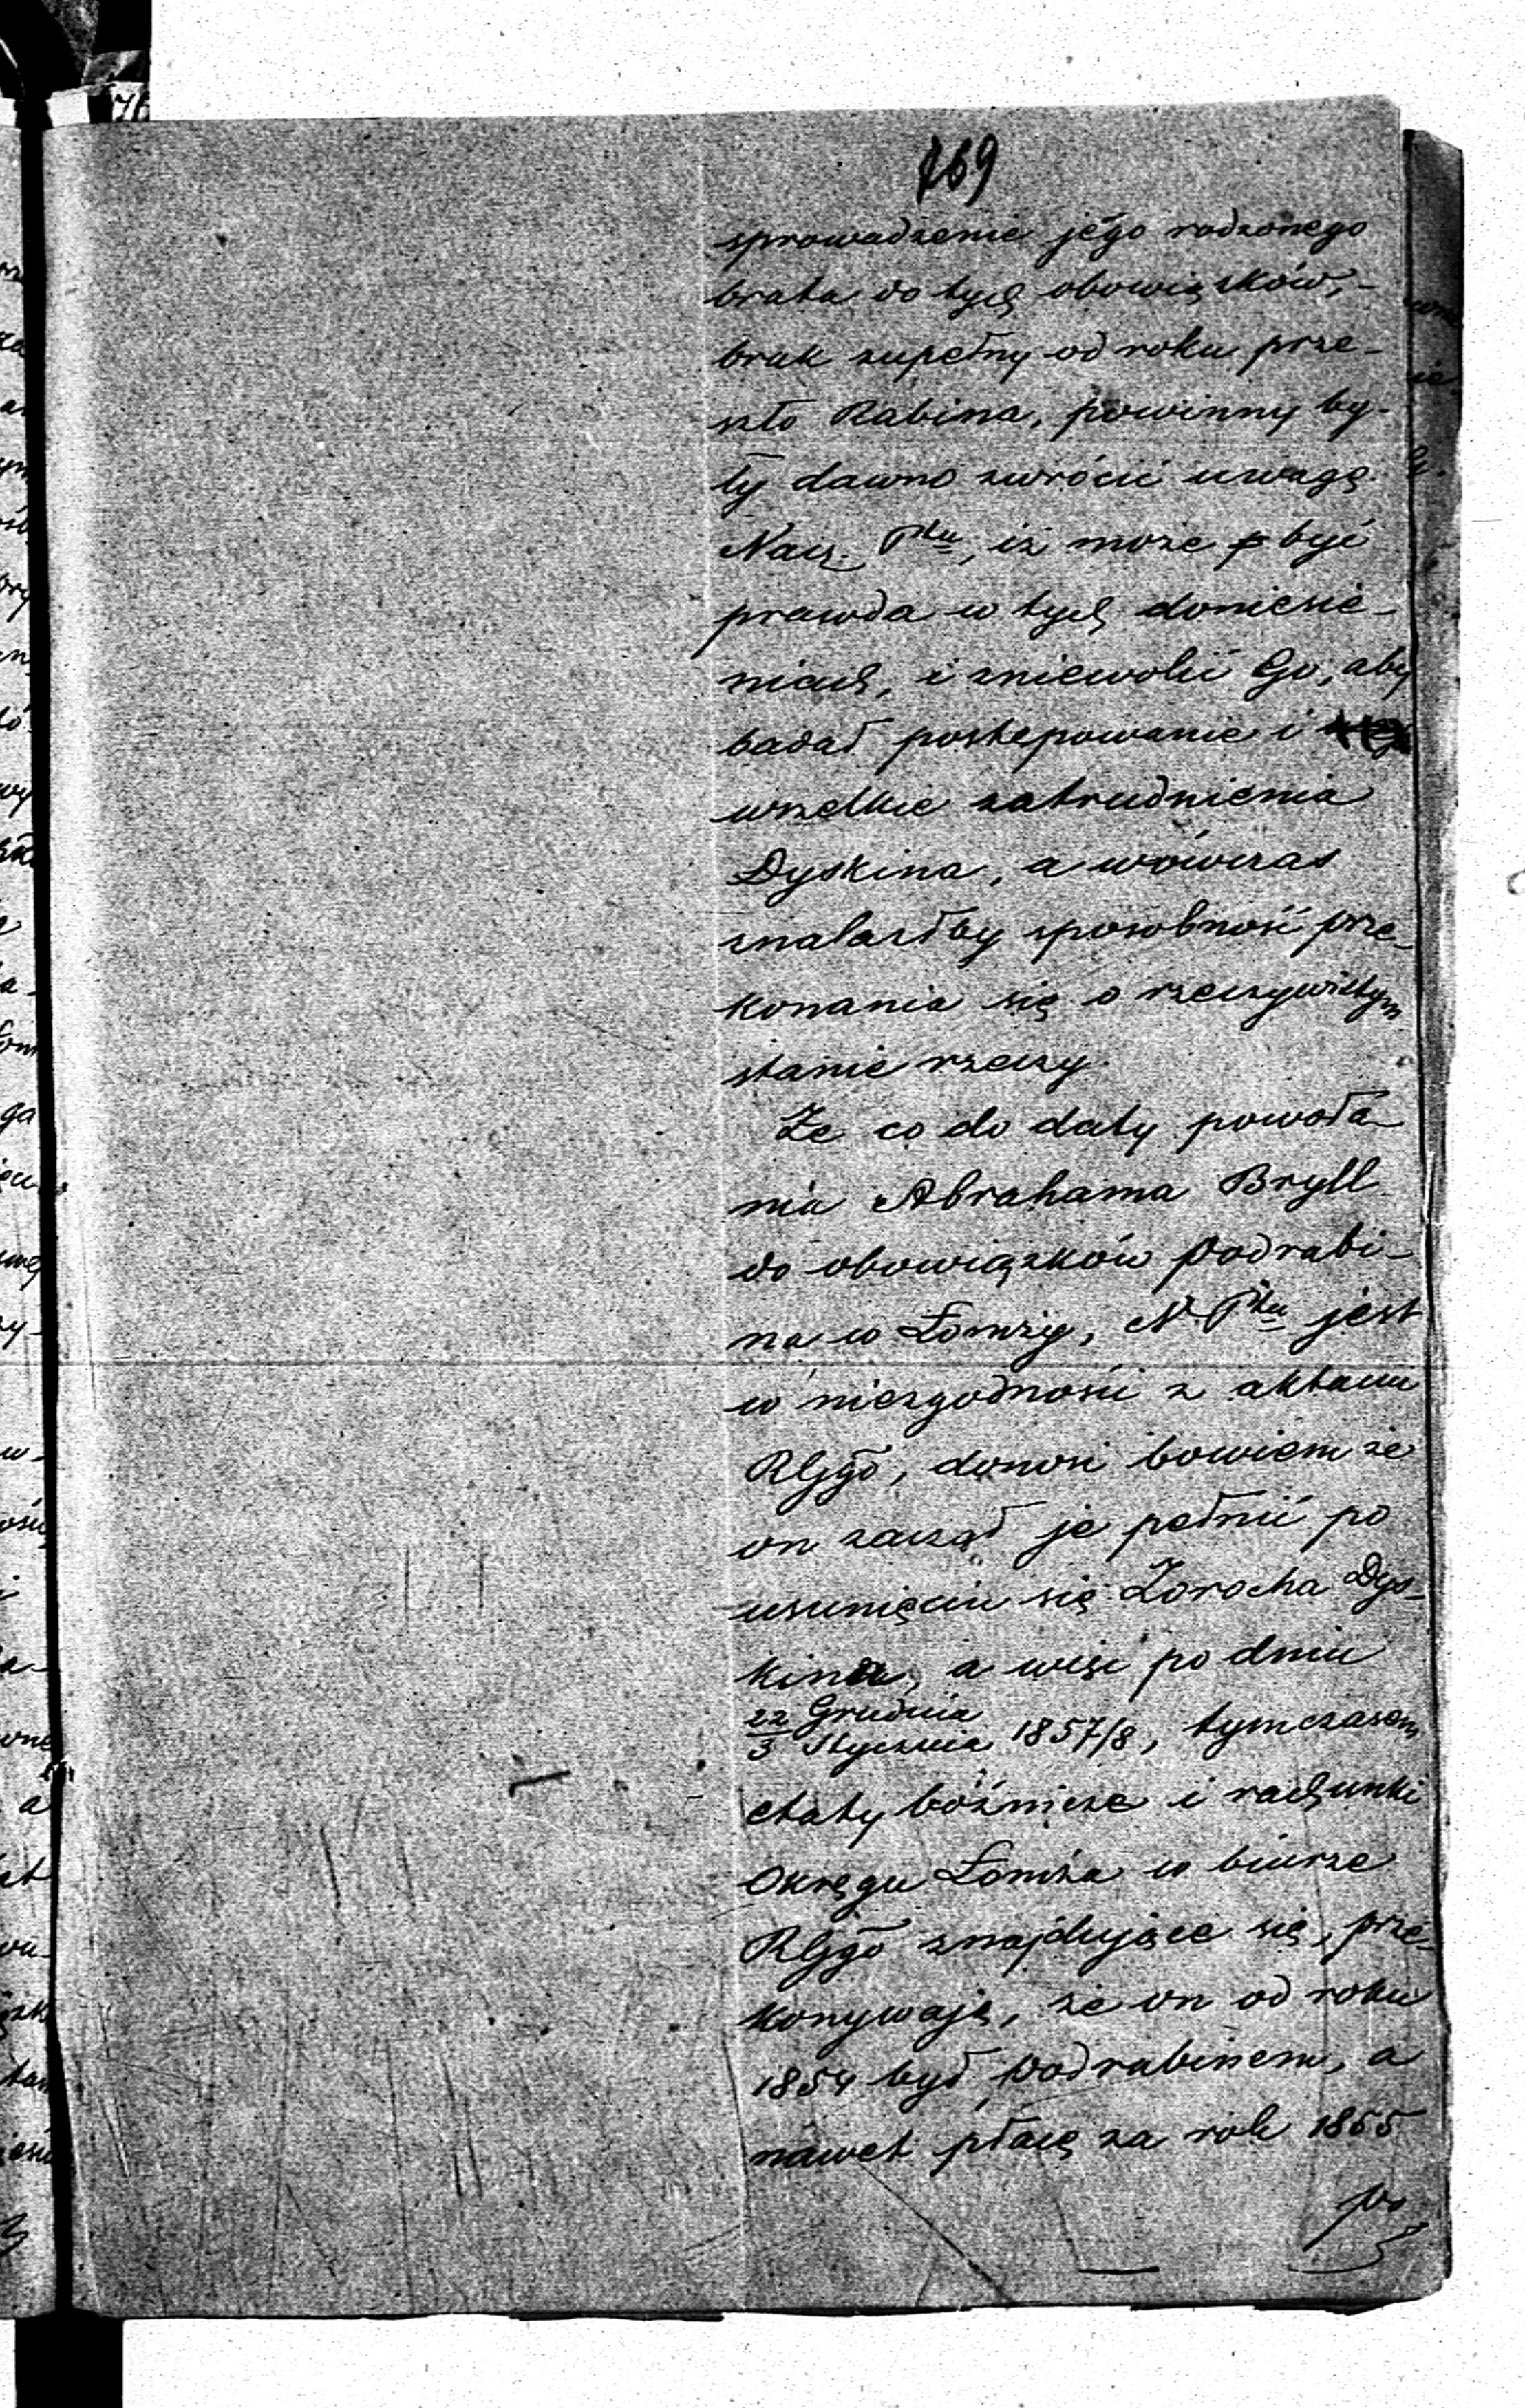 769
sprowadzenie jego rodzonego
brata do tych obowiązków,-
brak zupełny od roku prze-
szło Rabina, powinny by-
ły dawno zwrócić uwagę
Nacz. Ptu, iż może być
prawda w tych doniesie-
niach, i zniewolić Go, aby
badał postepowanie i
wszelkie zatrudnienia
Dyskina, a wówczas
znalazłby sposobność prze-
konania się o rzeczywistym
stanie rzeczy.
Że co do daty powoła-
nia Abrahama Bryll
do obowiązków Podrabi-
na w Łomży, N. Ptu jest
w niezgodności z aktami
RGgo, donosi bowiem że
on zaczął je pełnić po
usunięciu się Zorocha Dys-
kina, a więc po dniu
22 Grudnia
3 Stycznia 1857/8, tymczasem
etaty bóźnicze i rachunki
Okręgu Łomża w biurze
RGgo znajdujące się, prze-
konywają, że on od roku
1854 był Podrabinem, a
nawet płacę za rok 1855
po